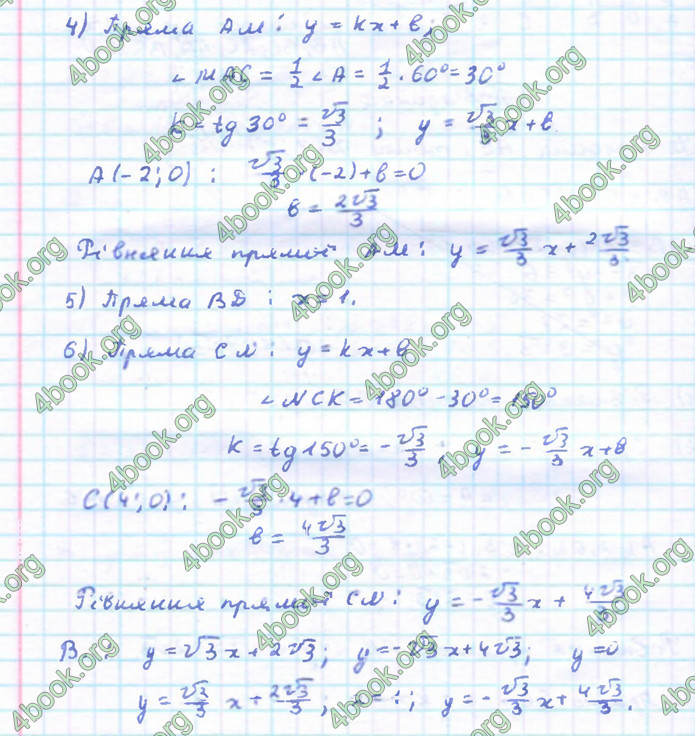 4) Пряма AM: y = kx + b;
∠MAC = 1/2 ∠A = 1/2 · 60° = 30°
k = tg 30° = √3/3 ; y = √3/3 x + b.
A(-2; 0) : √3/3 · (-2) + b = 0
b = 2√3/3
Рівняння прямої AM: y = √3/3 x + 2√3/3
5) Пряма BD : x = 1.
6) Пряма CN : y = kx + b
∠NCK = 180° - 30° = 150°
k = tg 150° = -√3/3 ; y = -√3/3 x + b
C(4; 0) : -√3/3 · 4 + b = 0
b = 4√3/3
Рівняння прямої CN : y = -√3/3 x + 4√3/3
y = √3 x + 2√3; y = -√3 x + 4√3; y = 0
y = √3/3 x + 2√3/3; x = 1; y = -√3/3 x + 4√3/3.
4book.org